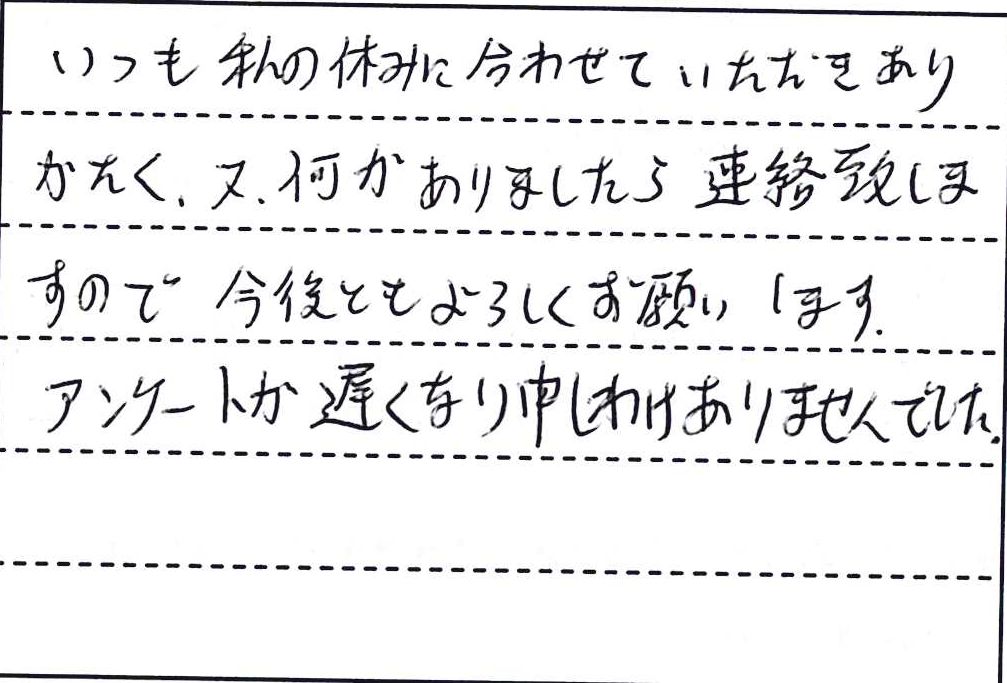 いつも私の休みに合わせていただきあり
がたく、又、何かありましたら連絡致しま
すので今後ともよろしくお願いします.
アンケートが遅くなり申しわけありませんでした.